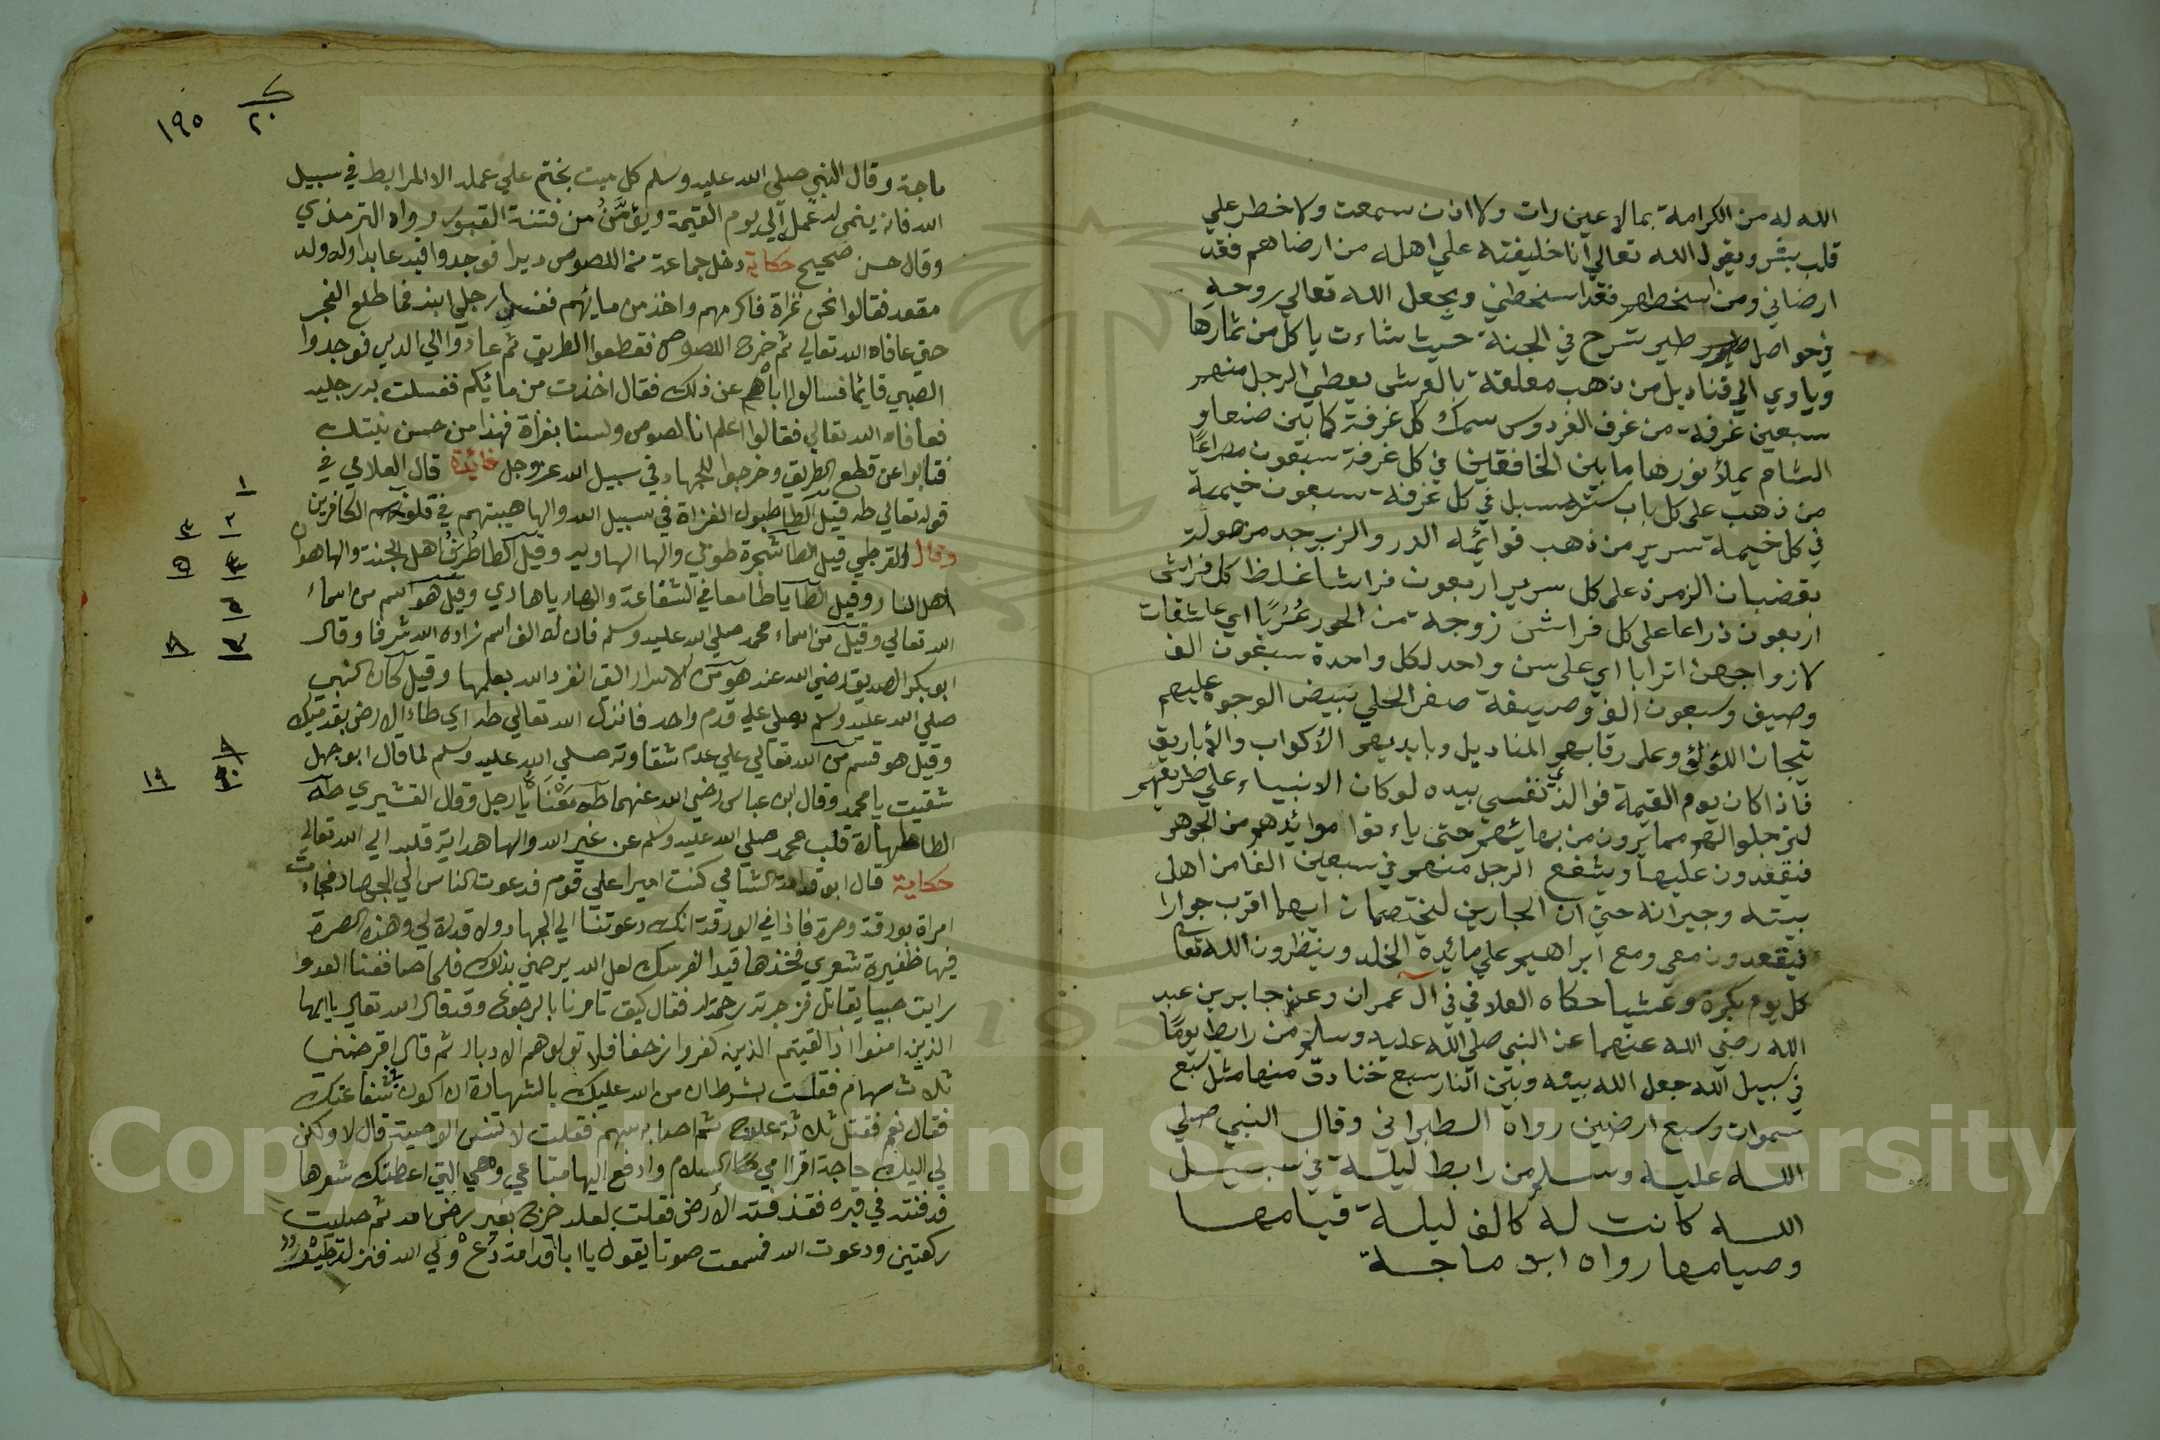 الله له من الكرامة بما لا عين رات ولا اذن سمعت ولا خطر علي
قلب بشر ويقول الله تعالي انا خليفته علي اهله من ارضاهم فقد
ارضاني ومن اسخطهم فقد اسخطني ويجعل الله تعالي روحه
في حواصل طير تسرح في الجنة حيث شاءت ياكل من ثمارها
وياوي الي قناديل من ذهب معلقة بالعرش يعطي الرجل منهم
سبعين غرفة من غرف الفردوس سمك كل غرفة كما بين صنعا و
الشام يملأ نورها ما بين الخافقين في كل غرفة سبعون مصراعا
من ذهب علي كل باب ستر مسبل في كل غرفة سبعون خيمة
في كل خيمة سرير من ذهب قوائمه الدر والزبرجد مرمولة
بقضبان الزمرذ على كل سرير اربعون فراشا غلظ كل فراش
اربعون ذراعا على كل فراش زوجة من الحور عُرُبًا اي عاشقات
لازواجهن اترابا اي على سن واحد لكل واحدة سبعون الف
وصيف وسبعون الف وصيفة صفر الحلي بيض الوجوه عليهم
تيجان اللؤلؤ وعلى رقابهم المناديل وبايديهم الأكواب والأباريق
فاذا كان يوم القيمة فوالذي نفسي بيده لو كان الانبياء علي طريقهم
لترجلوا لهم مما يرون من بهائهم حتى ياءتوا موائدهم من الجوهر
فيقعدون عليها ويشفع الرجل منهم في سبعين الفا من اهل
بيته وجيرانه حتي ان الجارين ليختصمان ايهما اقرب جوارا
فيقعدون معي ومع ابراهيم علي مائدة الخلد وينظرون الله تعالى
كل يوم بكرة وعشيا حكاه العلائي في آل عمران وعن جابر بن عبد
الله رضي الله عنهما عن النبي صلي الله عليه وسلم من رابط يومًا
في سبيل الله جعل الله بينه وبين النار سبع خنادق منها مثل سبع
سموات وسبع ارضين رواه الطبراني وقال النبي صلي
الله عليه وسلم من رابط ليلة في سبيل
الله كانت له كالف ليلة قيامها
وصيامها رواه ابن ماجة
١٩٥
ك
٢٠
ماجة وقال النبي صلي الله عليه وسلم كل ميت يختم علي عمله الا المرابط في سبيل
الله فانه ينمى له عمله الي يوم القيمة ويؤمَّنُ من فتنة القبور رواه الترمذي
وقال حسن صحيح حكاية دخل جماعة من اللصوص ديرا فوجدوا فيه عابدا وله ولد
مقعد فقالوا نحن غزاة فاكرمهم واخذ من مائهم فغسل رجلي ابنه فما طلع الفجر
حتي عافاه الله تعالي ثم خرج اللصوص فقطعوا الطريق ثم عادوا الي الدير فوجدوا
الصبي قائما فسالوا اباهم عن ذلك فقال اخذت من مائكم فغسلت به رجليه
فعافاه الله تعالي فقالوا اعلم انا لصوص ولسنا بغزاة فهذا من حسن نيتك
فتابوا عن قطع الطريق وخرجوا للجهاد في سبيل الله عز وجل فائدة قال العلائي في
قوله تعالي طه قيل الطا طبول الغزاة في سبيل الله والها هيبتهم في قلوب الكافرين
وقال القرطبي قيل الطا شجرة طوبي والها الهاوية وقيل الطا طرب اهل الجنة والها هوان
اهل النار وقيل الطا يا طامعا في الشفاعة والها يا هادي وقيل هو اسم من اسماء
الله تعالي وقيل من اسماء محمد صلي الله عليه وسلم فان له الف اسم زاده الله شرفا وقال
ابو بكر الصديق رضي الله عنه هو من الاسرار التي انفرد الله بعلمها وقيل كان النبي
صلي الله عليه وسلم يصلي علي قدم واحد فانزل الله تعالي طه اي طاء الارض بقدميك
وقيل هو قسم من الله تعالي علي عدم شقاوته صلي الله عليه وسلم لما قال ابو جهل
شقيت يا محمد وقال ابن عباس رضي الله عنهما طه معناه يا رجل وقال القشيري طه
الطا طهارة قلب محمد صلي الله عليه وسلم عن غير الله والها هداية قلبه الي الله تعالي
حكاية قال ابو قدامة الشامي كنت اميرا علي قوم فدعوت الناس الي الجهاد فجاءت
امراة بورقة وصرة فاذا في الورقة انك دعوتنا الي الجهاد ولا قدرة لي وهذه الصرة
فيها ظفيرة شعري فخذها قيدا لفرسك لعل الله يرحمني بذلك فلما صاففنا العدو
رايت صبيا يقاتل فزجرته رحمة له فقال كيف تامرنا بالرجوع وقد قال الله تعالي يا ايها
الذين امنوا اذا لقيتم الذين كفروا زحفا فلا تولوهم الادبار ثم قال اقرضني
ثلاث سهام فقلت بشرط ان من الله عليك بالشهادة ان اكون في شفاعتك
فقال نعم فقتل ثلاثة علاج ثم اصابه سهم فقلت لا تنس الوصية قال لا ولكن
لي اليك حاجة اقرا امي السلام وادفع اليها متاعي وهي التي اعطتك شعرها
فدفنته في قبره فقذفته الأرض فقلت لعله خرج بغير رضى امه ثم صليت
ركعتين ودعوت الله فسمعت صوتا يقول يا ابا قدامة دع ولي الله فنزلت طيور
١
٢
٣
٥
٨
١٩